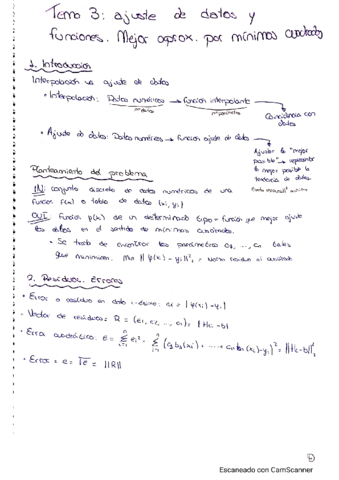 Tema 3: ajuste de datos y
funciones. Mejor aprox. por mínimos cuadrados
1. Introducción
Interpolación vs ajuste de datos
• Interpolación: Datos numéricos → Función interpolante
Coincidencia con
datos
• Ajuste de datos: Datos numéricos → Función ajuste de datos
Ajustar lo "mejor
posible" → representar
lo mejor posible la
tendencia de datos.
Planteamiento del problema
IN: conjunto discreto de datos numéricos de una
función f(x) o tabla de datos (xi, yi)
OUT: Función φ(x) de un determinado tipo = función que mejor ajuste
los datos en el sentido de mínimos cuadrados.
• Se trata de encontrar los parámetros c1, ..., cn tales
que minimicen: Min || φ(xi) - yi ||²₂ =
2. Residuos. Errores
• Error o residuo en dato i-ésimo: ei = | φ(xi) - yi |
• Vector de residuos: R = (e1, e2, ..., en), | Hc - b |
• Error cuadrático: E = Σ ei² = Σ (c1 b1(xi) + ..... + cn bn(xi) - yi)² = || Hc - b ||²₂
• Error = e = √E = ||R||
Escaneado con CamScanner